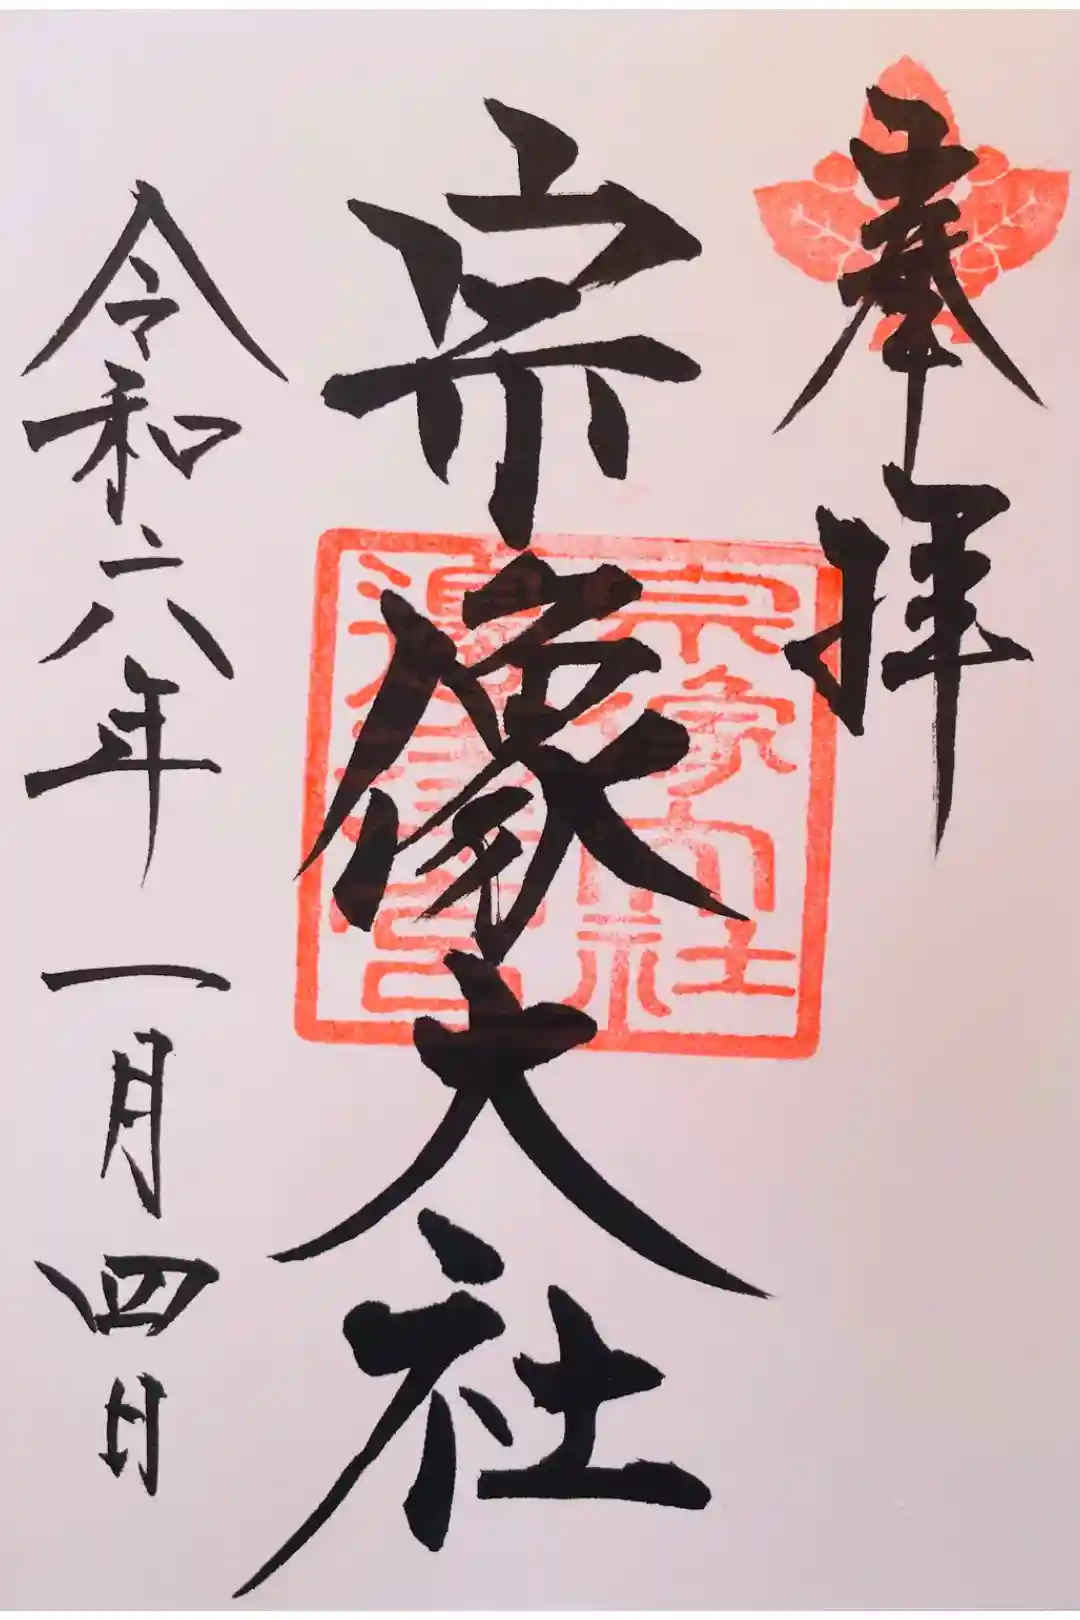 奉拝
宗像大社
令和六年一月四日
宗像大社